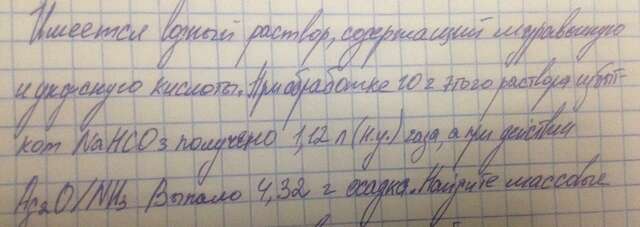 Имеется водный раствор, содержащий муравьиную
и уксусную кислоты. При обработке 10 г этого раствора избыт-
ком NaHCO3 получено 1,12 л (н.у.) газа, а при действии
Ag2O/NH3 Выпало 4,32 г осадка. Найдите массовые